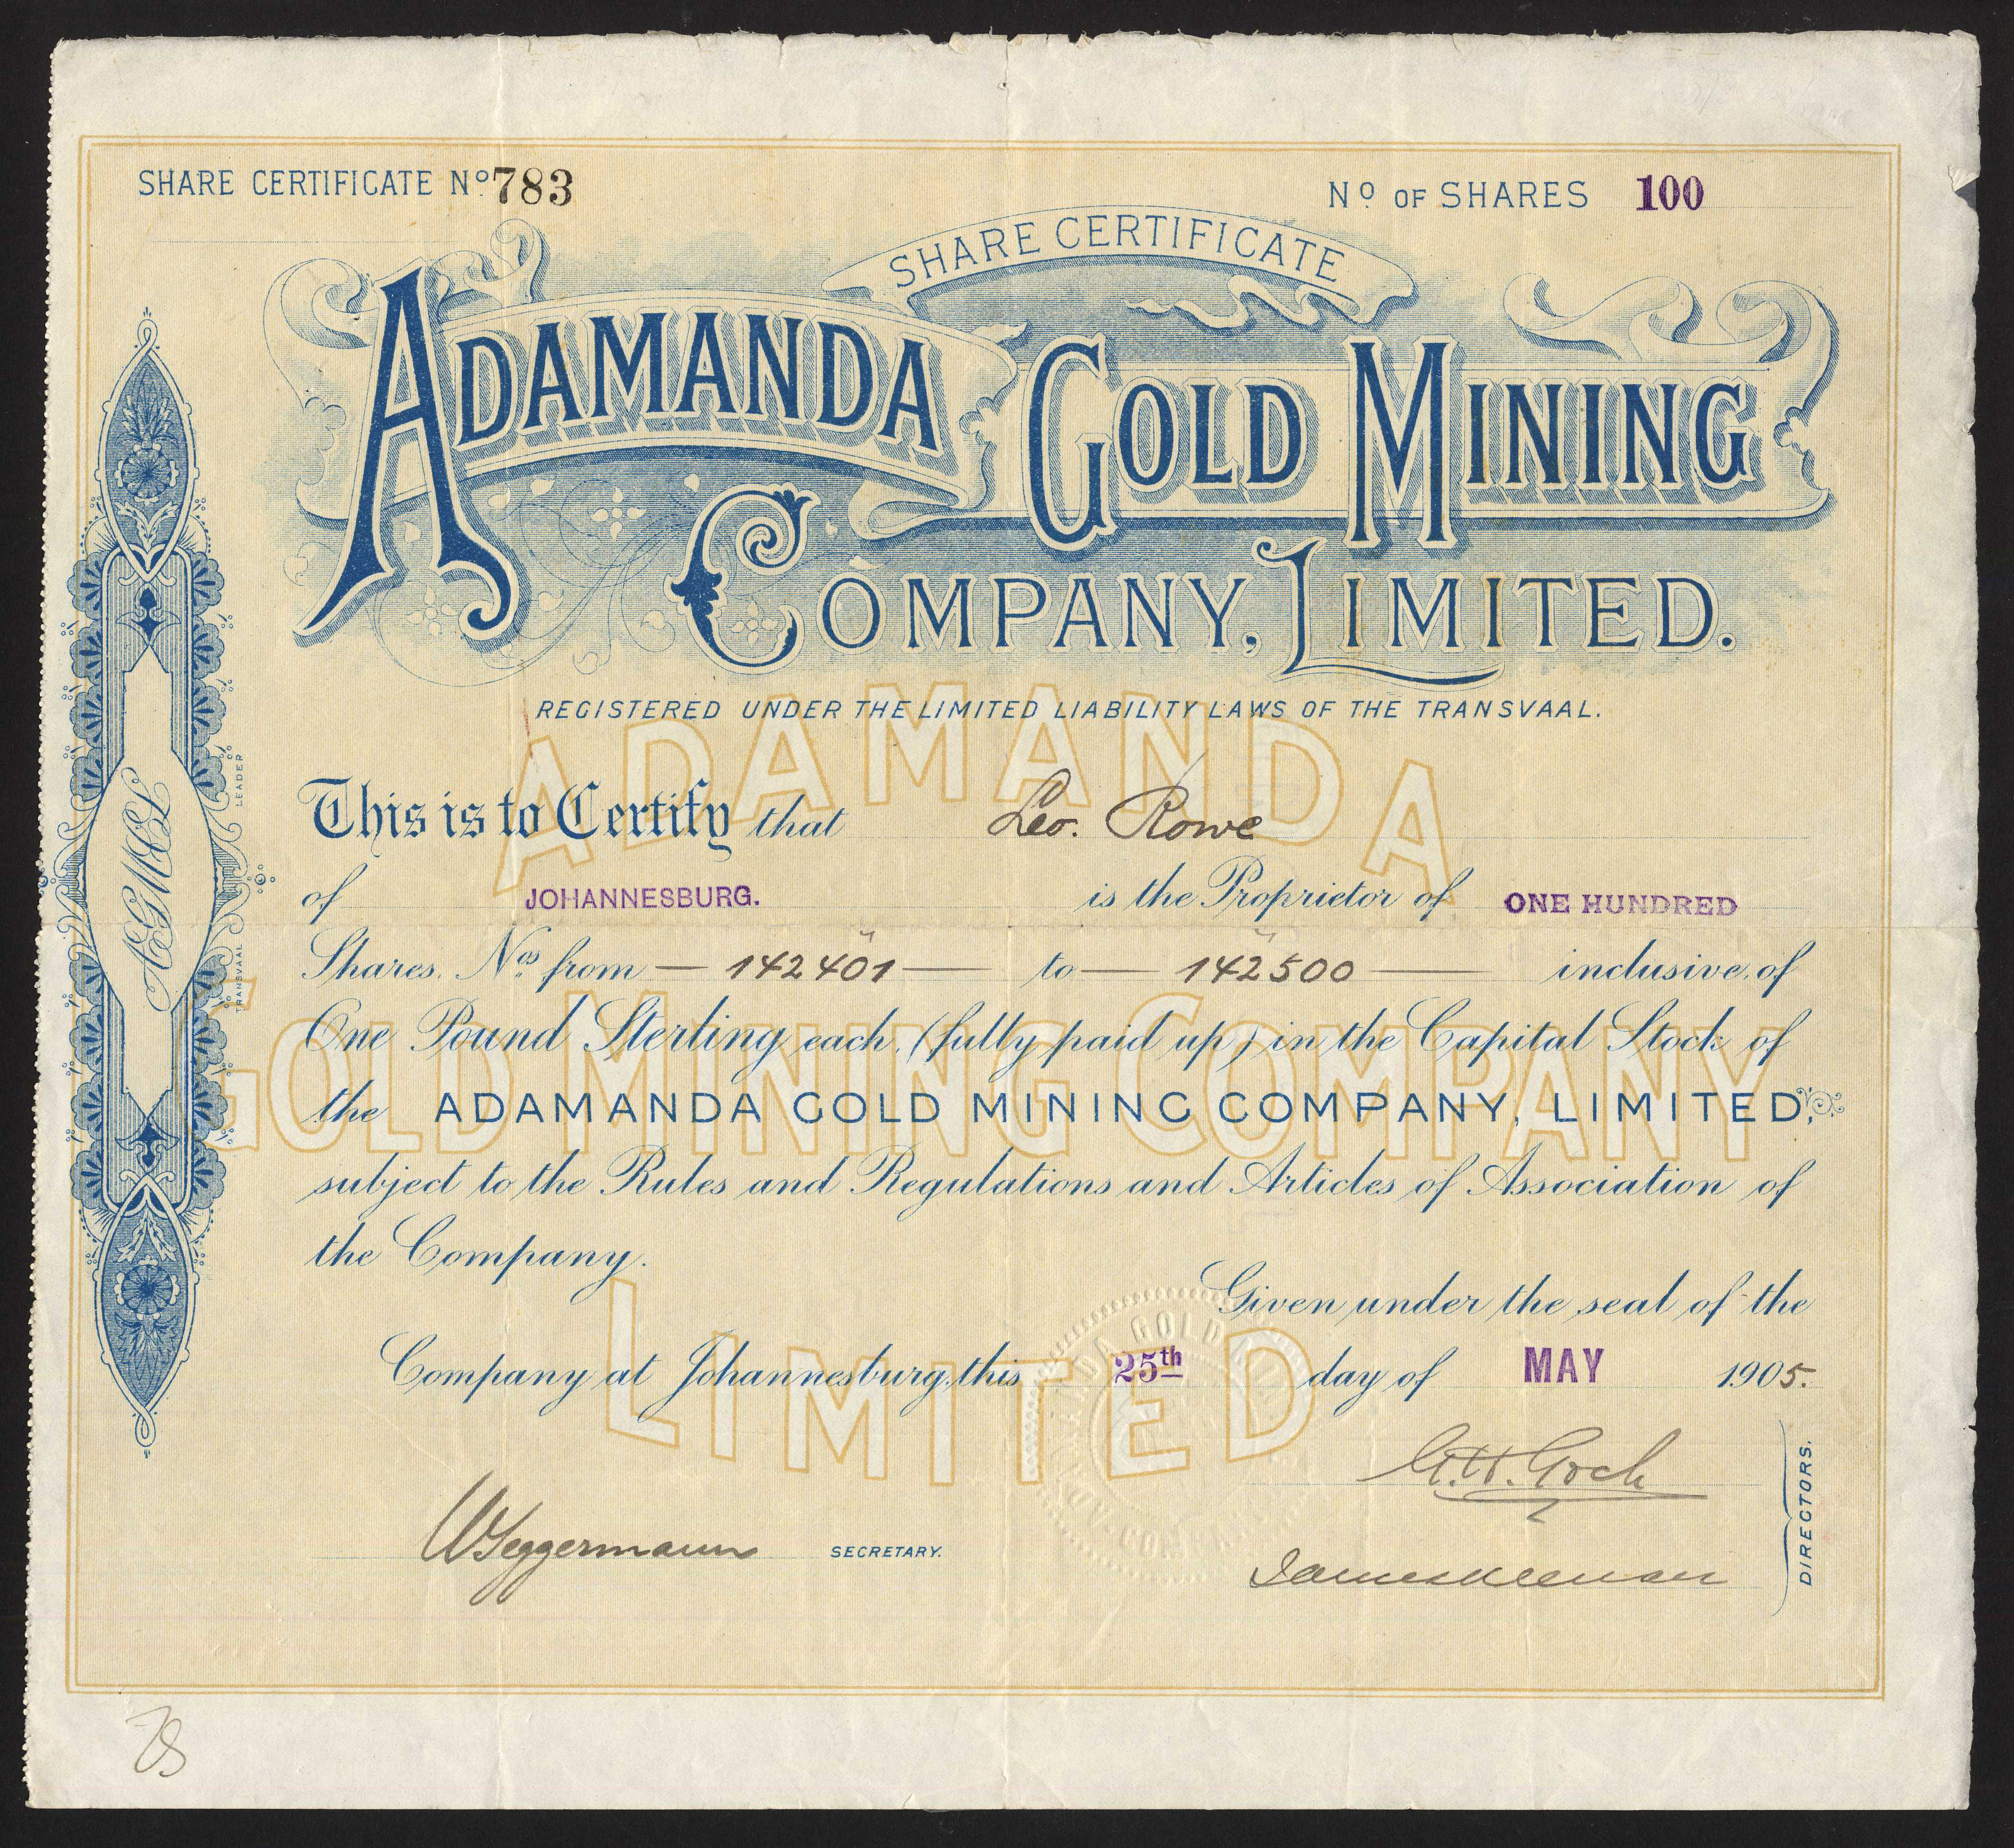 SHARE CERTIFICATE Nº 783
Nº OF SHARES 100
SHARE CERTIFICATE
ADAMANDA GOLD MINING
COMPANY, LIMITED.
REGISTERED UNDER THE LIMITED LIABILITY LAWS OF THE TRANSVAAL.
ADAMANDA
GOLD MINING COMPANY
LIMITED
This is to Certify that Leo. Rowe
of JOHANNESBURG. is the Proprietor of ONE HUNDRED
Shares, Nos from — 142401 — to — 142500 — inclusive, of
One Pound Sterling each, (fully paid up) in the Capital Stock of
the ADAMANDA GOLD MINING COMPANY, LIMITED,
subject to the Rules and Regulations and Articles of Association of
the Company.
Given under the seal of the
Company at Johannesburg, this 25th day of MAY 1905.
G.H. Goch
SECRETARY.
DIRECTORS.
AGMCL
TRANSVAAL LEADER